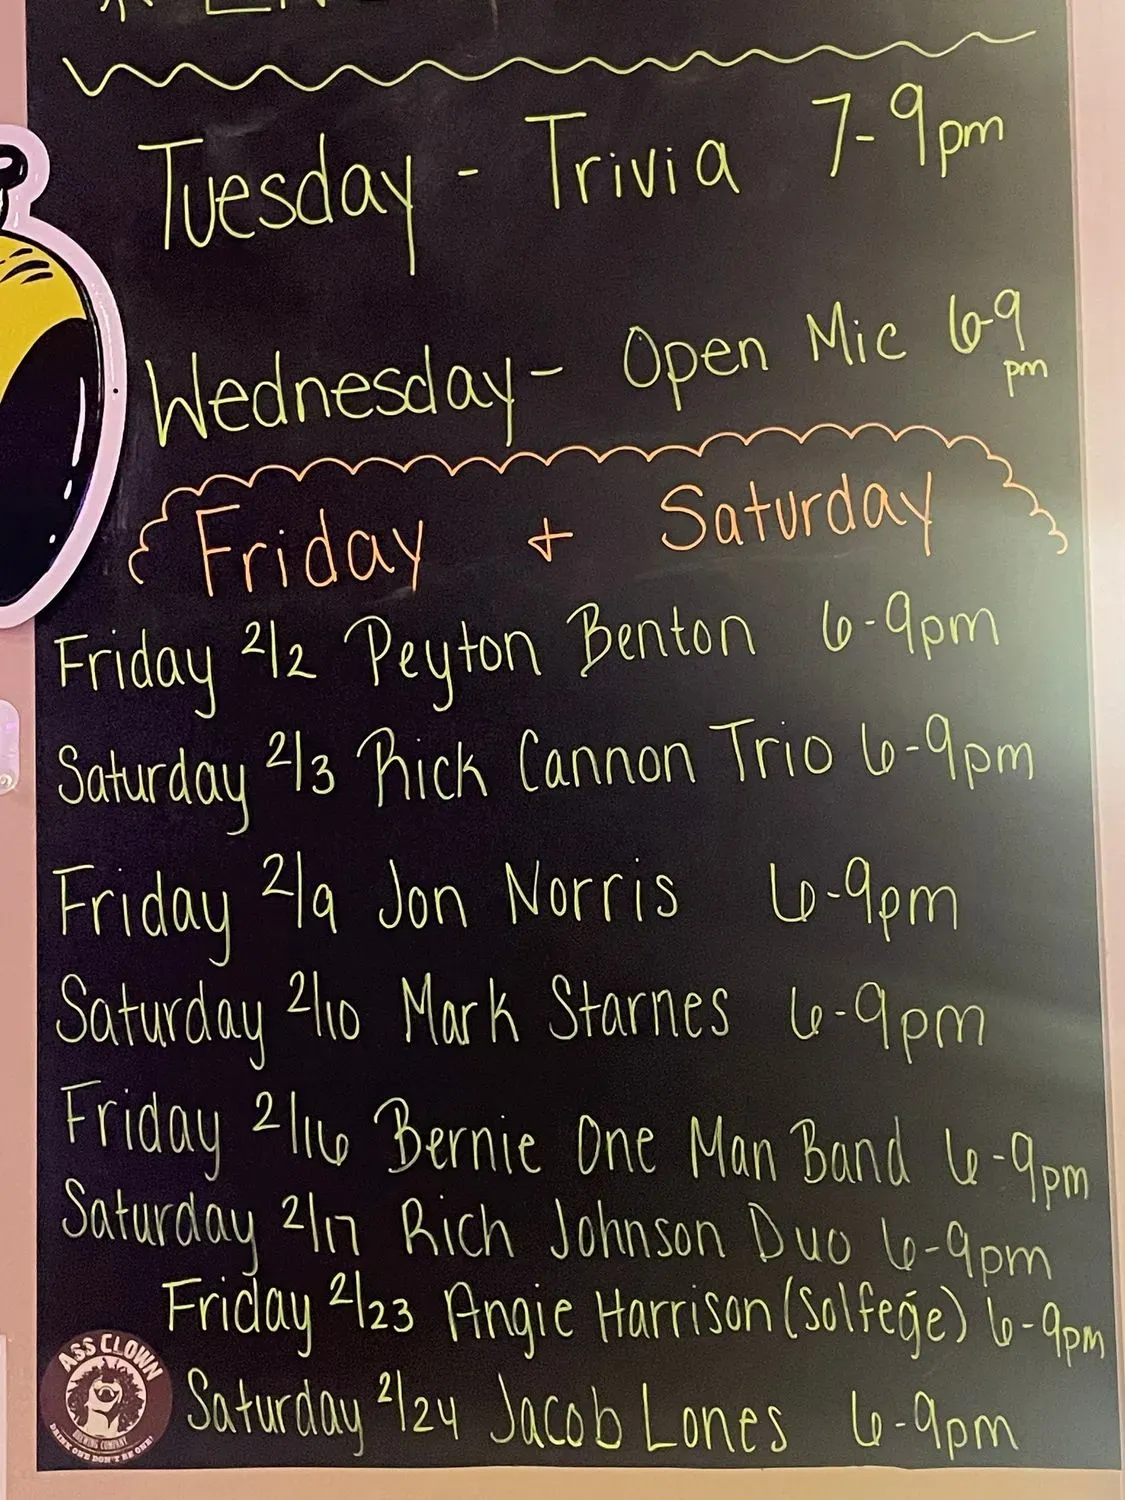 Tuesday - Trivia 7-9pm
Wednesday - Open Mic 6-9
pm
Friday + Saturday
Friday 2/2 Peyton Benton 6-9pm
Saturday 2/3 Rick Cannon Trio 6-9pm
Friday 2/9 Jon Norris 6-9pm
Saturday 2/10 Mark Starnes 6-9pm
Friday 2/16 Bernie One Man Band 6-9pm
Saturday 2/17 Rich Johnson Duo 6-9pm
Friday 2/23 Angie Harrison (Solfege) 6-9pm
Saturday 2/24 Jacob Lones 6-9pm
ASS CLOWN
BREWING COMPANY
DRINK ONE DON'T BE ONE!